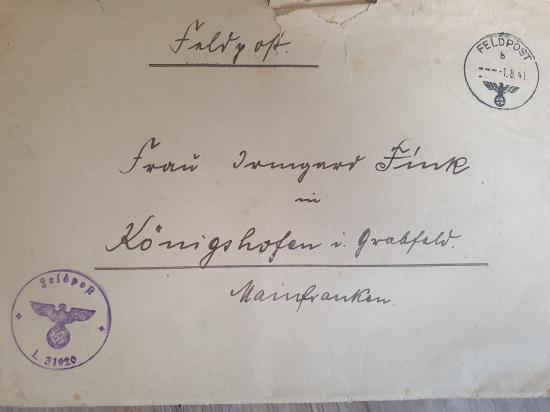 Feldpost.
FELDPOST
b
-1.8.41
Frau Irmgard Fink
in
Königshofen i. Grabfeld.
Mainfranken.
Feldpost
L 31920